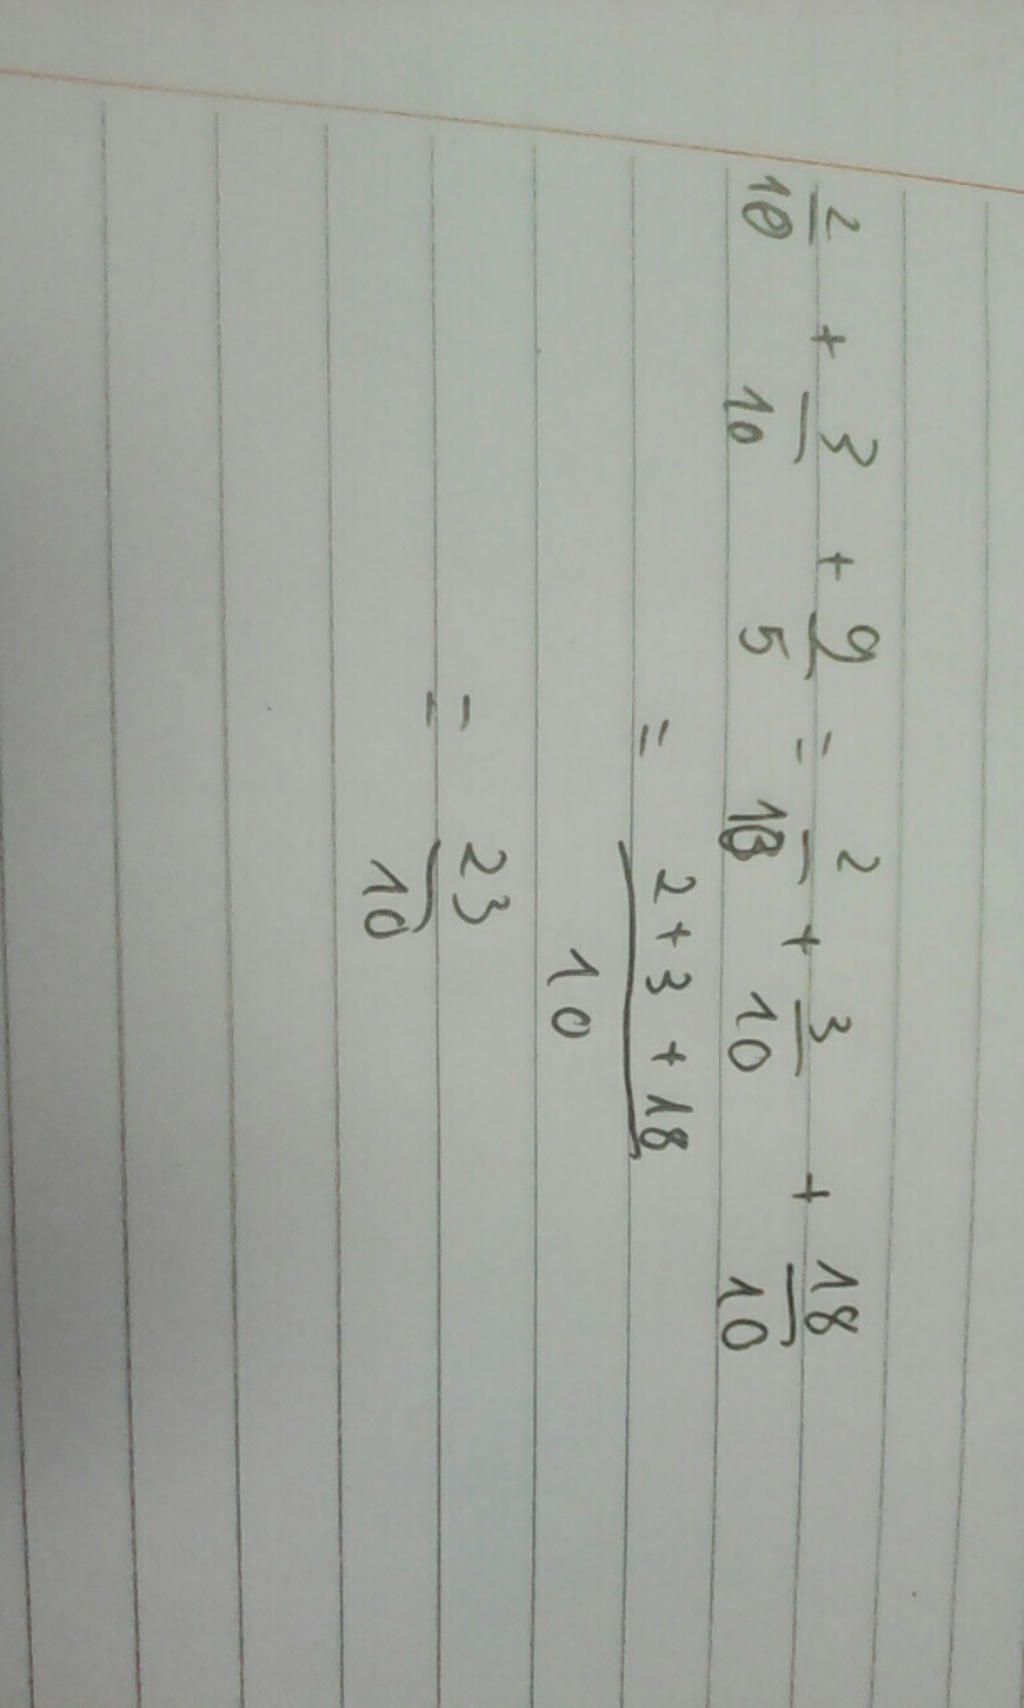 2/10 + 3/10 + 9/5 = 2/10 + 3/10 + 18/10
= (2 + 3 + 18)/10
= 23/10